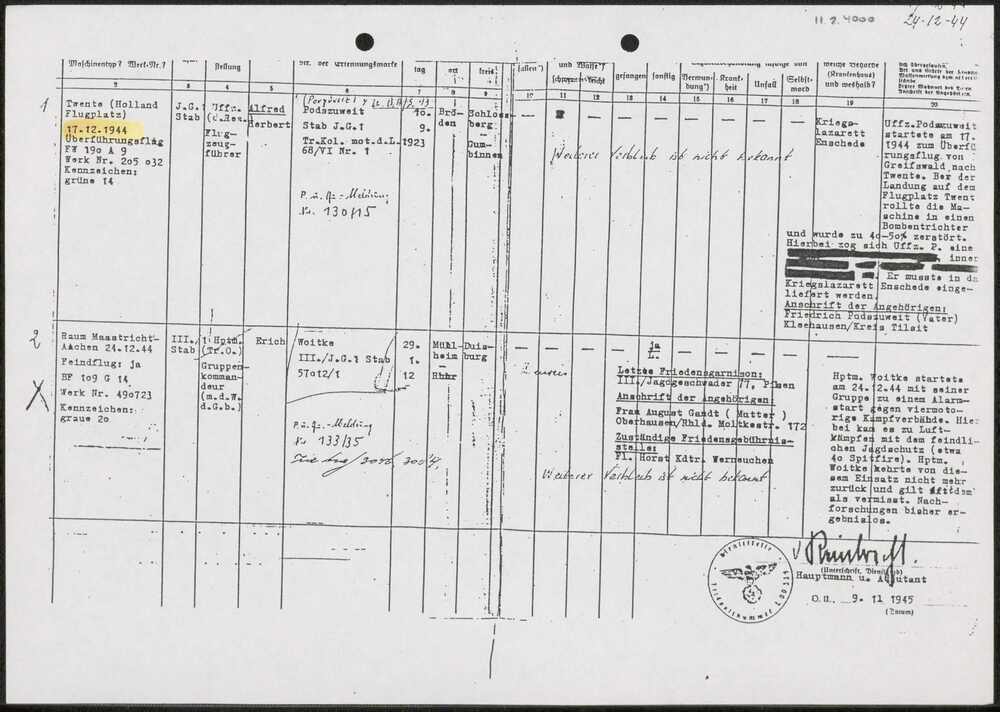 11.2.4000
24-12-44
Maschinentyp? Werk-Nr.?
stellung
Nr. der Erkennungsmarke
tag
ort
kreis
fallen*)
und Waffe?
schwer
leicht
gefangen
sonstig
Verwun-
dung*)
Krank-
heit
Unfall
Selbst-
mord
welche Behörde
(Krankenhaus)
und weshalb?
2 3 4 5 6 7 8 9 10 11 12 13 14 15 16 17 18 19 20
1
Twente (Holland
Flugplatz)
17.12.1944
Überführungsflug
FW 190 A 9
Werk Nr. 205 032
Kennzeichen:
grüne 14
J.G.1
Stab
Uffz.
Flug-
zeug-
führer
Alfred
Herbert
Podszuweit
Stab J.G.1
Tr.Kol. mot.d.L.
68/VI Nr. 1
P.u.Fz.-Meldung
Nr. 130/15
10.
9.
1923
Brö-
den
Schloss-
berg
Gum-
binnen
Weiterer Verbleib ist nicht bekannt
Kriegs-
lazarett
Enschede
Uffz.Podszuweit
startete am 17.
1944 zum Überfü
rungsflug von
Greifswald nach
Twente. Bei der
Landung auf dem
Flugplatz Twent
rollte die Ma-
schine in einen
Bombentrichter
und wurde zu 40-50% zerstört.
Hierbei zog sich Uffz. P. eine
inner
Er musste in da
Kriegslazarett Enschede einge-
liefert werden.
Anschrift der Angehörigen:
Friedrich Podszuweit (Vater)
Kleehausen/Kreis Tilsit
2
Raum Maastricht-
Aachen 24.12.44
Feindflug: ja
BF 109 G 14
Werk Nr. 490723
Kennzeichen:
graue 20
III./
Stab
Hptm.
(Tr.O.)
Gruppen-
komman-
deur
(m.d.W.
d.G.b.)
Erich
Woitke
III./J.G.1 Stab
57012/1
P.u.Fz.-Meldung
Nr. 133/35
29.
1.
12
Mühl-
heim
Ruhr
Duis-
burg
ja
Letzte Friedensgarnison:
III./Jagdgeschwader 77, Pilsen
Anschrift der Angehörigen:
Frau August Gandt (Mutter)
Oberhausen/Rhld. Moltkestr. 172
Zuständige Friedensgebührnis-
stelle:
Fl. Horst Kdtr. Werneuchen
Weiterer Verbleib ist nicht bekannt
Hptm. Woitke startete
am 24.12.44 mit seiner
Gruppe zu einem Alarm-
start gegen viermoto-
rige Kampfverbände. Hier
bei kam es zu Luft-
kämpfen mit dem feindli-
chen Jagdschutz (etwa
40 Spitfire). Hptm.
Woitke kehrte von die-
sem Einsatz nicht mehr
zurück und gilt seitdem
als vermisst. Nach-
forschungen bisher er-
gebnislos.
Dienststelle
Feldpostnummer L 00324
(Unterschrift, Dienstgrad)
Hauptmann u. Adjutant
O.U., 9. 11 1945
(Datum)